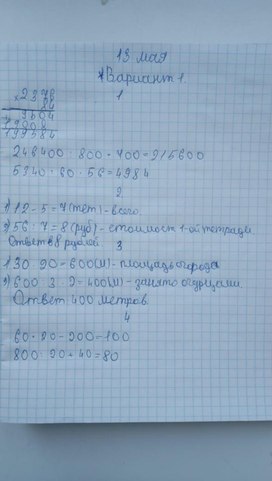 13 мая
Вариант 1.
1
×2376
84
9504
19008
199584
246400 : 800 · 700 = 215600
5340 : 60 · 56 = 4984
2
1) 12 - 5 = 7 (тет) - всего.
2) 56 : 7 = 8 (руб) - стоимость 1-ой тетради.
Ответ: 8 рублей
3
1) 30 · 20 = 600 (м) - площадь огорода
2) 600 : 3 · 2 = 400 (м) - занято огурцами.
Ответ: 400 метров.
4
60 · 20 - 200 = 100
800 : 20 + 40 = 80